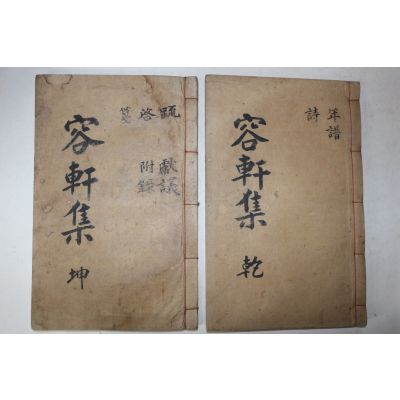 年譜
詩
容軒集 乾
疏 獻議
啓 附錄
箋
容軒集 坤